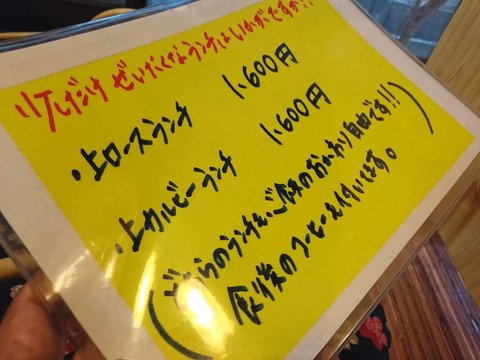 少しだけ ぜいたくなランチはいかがですか!!
・上ロースランチ 1,600円
・上カルビーランチ 1,600円
(どちらのランチもご飯のおかわり自由です!!
食後のコーヒーも付いてます。)